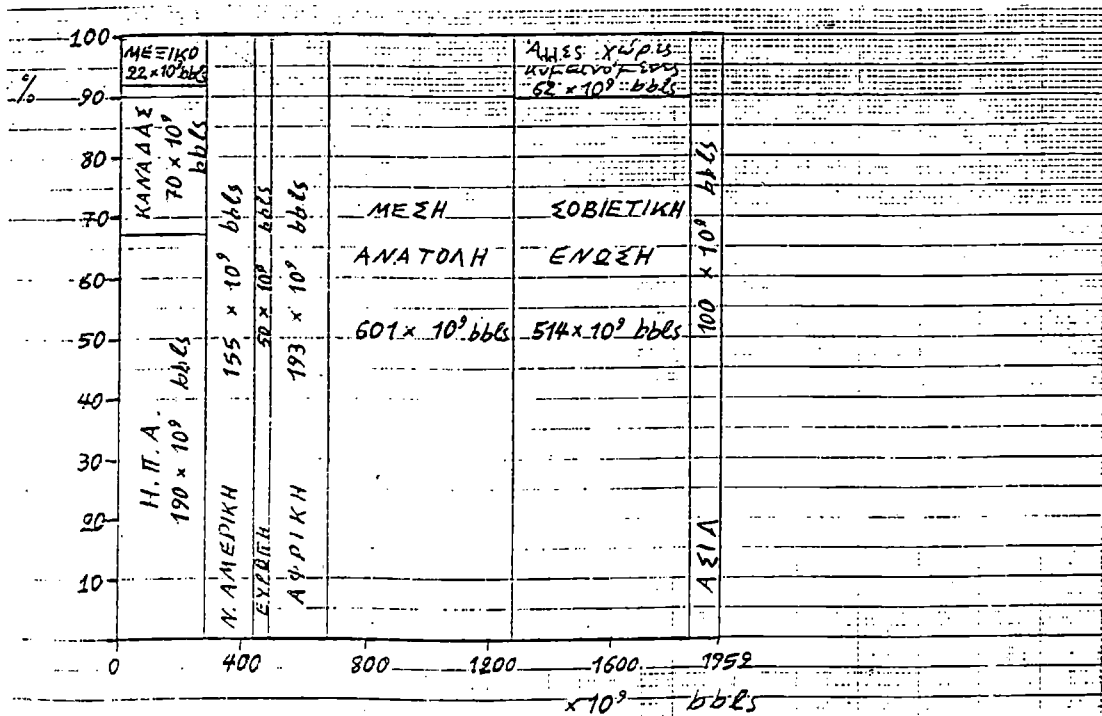 100
%
90
80
70
60
50
40
30
20
10
ΜΕΞΙΚΟ
22 x 10⁹ bbls
ΚΑΝΑΔΑΣ
70 x 10⁹
bbls
Η.Π.Α.
190 x 10⁹ bbls
Ν. ΑΜΕΡΙΚΗ 155 x 10⁹ bbls
ΕΥΡΩΠΗ 50 x 10⁹ bbls
ΑΦΡΙΚΗ 193 x 10⁹ bbls
ΜΕΣΗ
ΑΝΑΤΟΛΗ
601 x 10⁹ bbls
Άλλες χώρες
62 x 10⁹ bbls
ΣΟΒΙΕΤΙΚΗ
ΕΝΩΣΗ
514 x 10⁹ bbls
ΑΣΙΑ 100 x 10⁹ bbls
0 400 800 1200 1600 1952
x10⁹ bbls